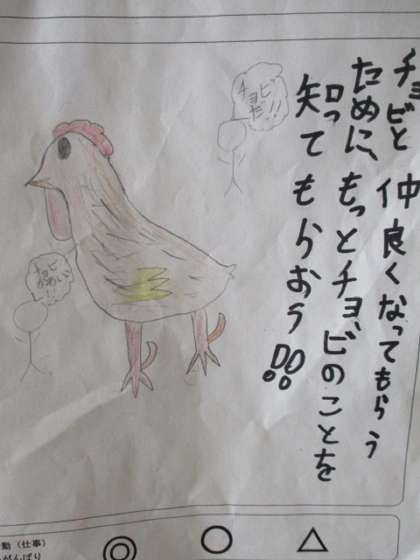 チョビと仲良くなってもらう
ために、もっとチョビのことを
知ってもらおう!!
チョビ
だ!!
チョビ
動（仕事）
がんばり
◎ ○ △